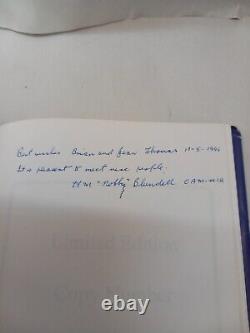 Best wishes Brian and Jean Thomas 11-5-1996
It's pleasant to meet nice people.
H.M "Nobby" Blundell
Limited Edition
Copy Number